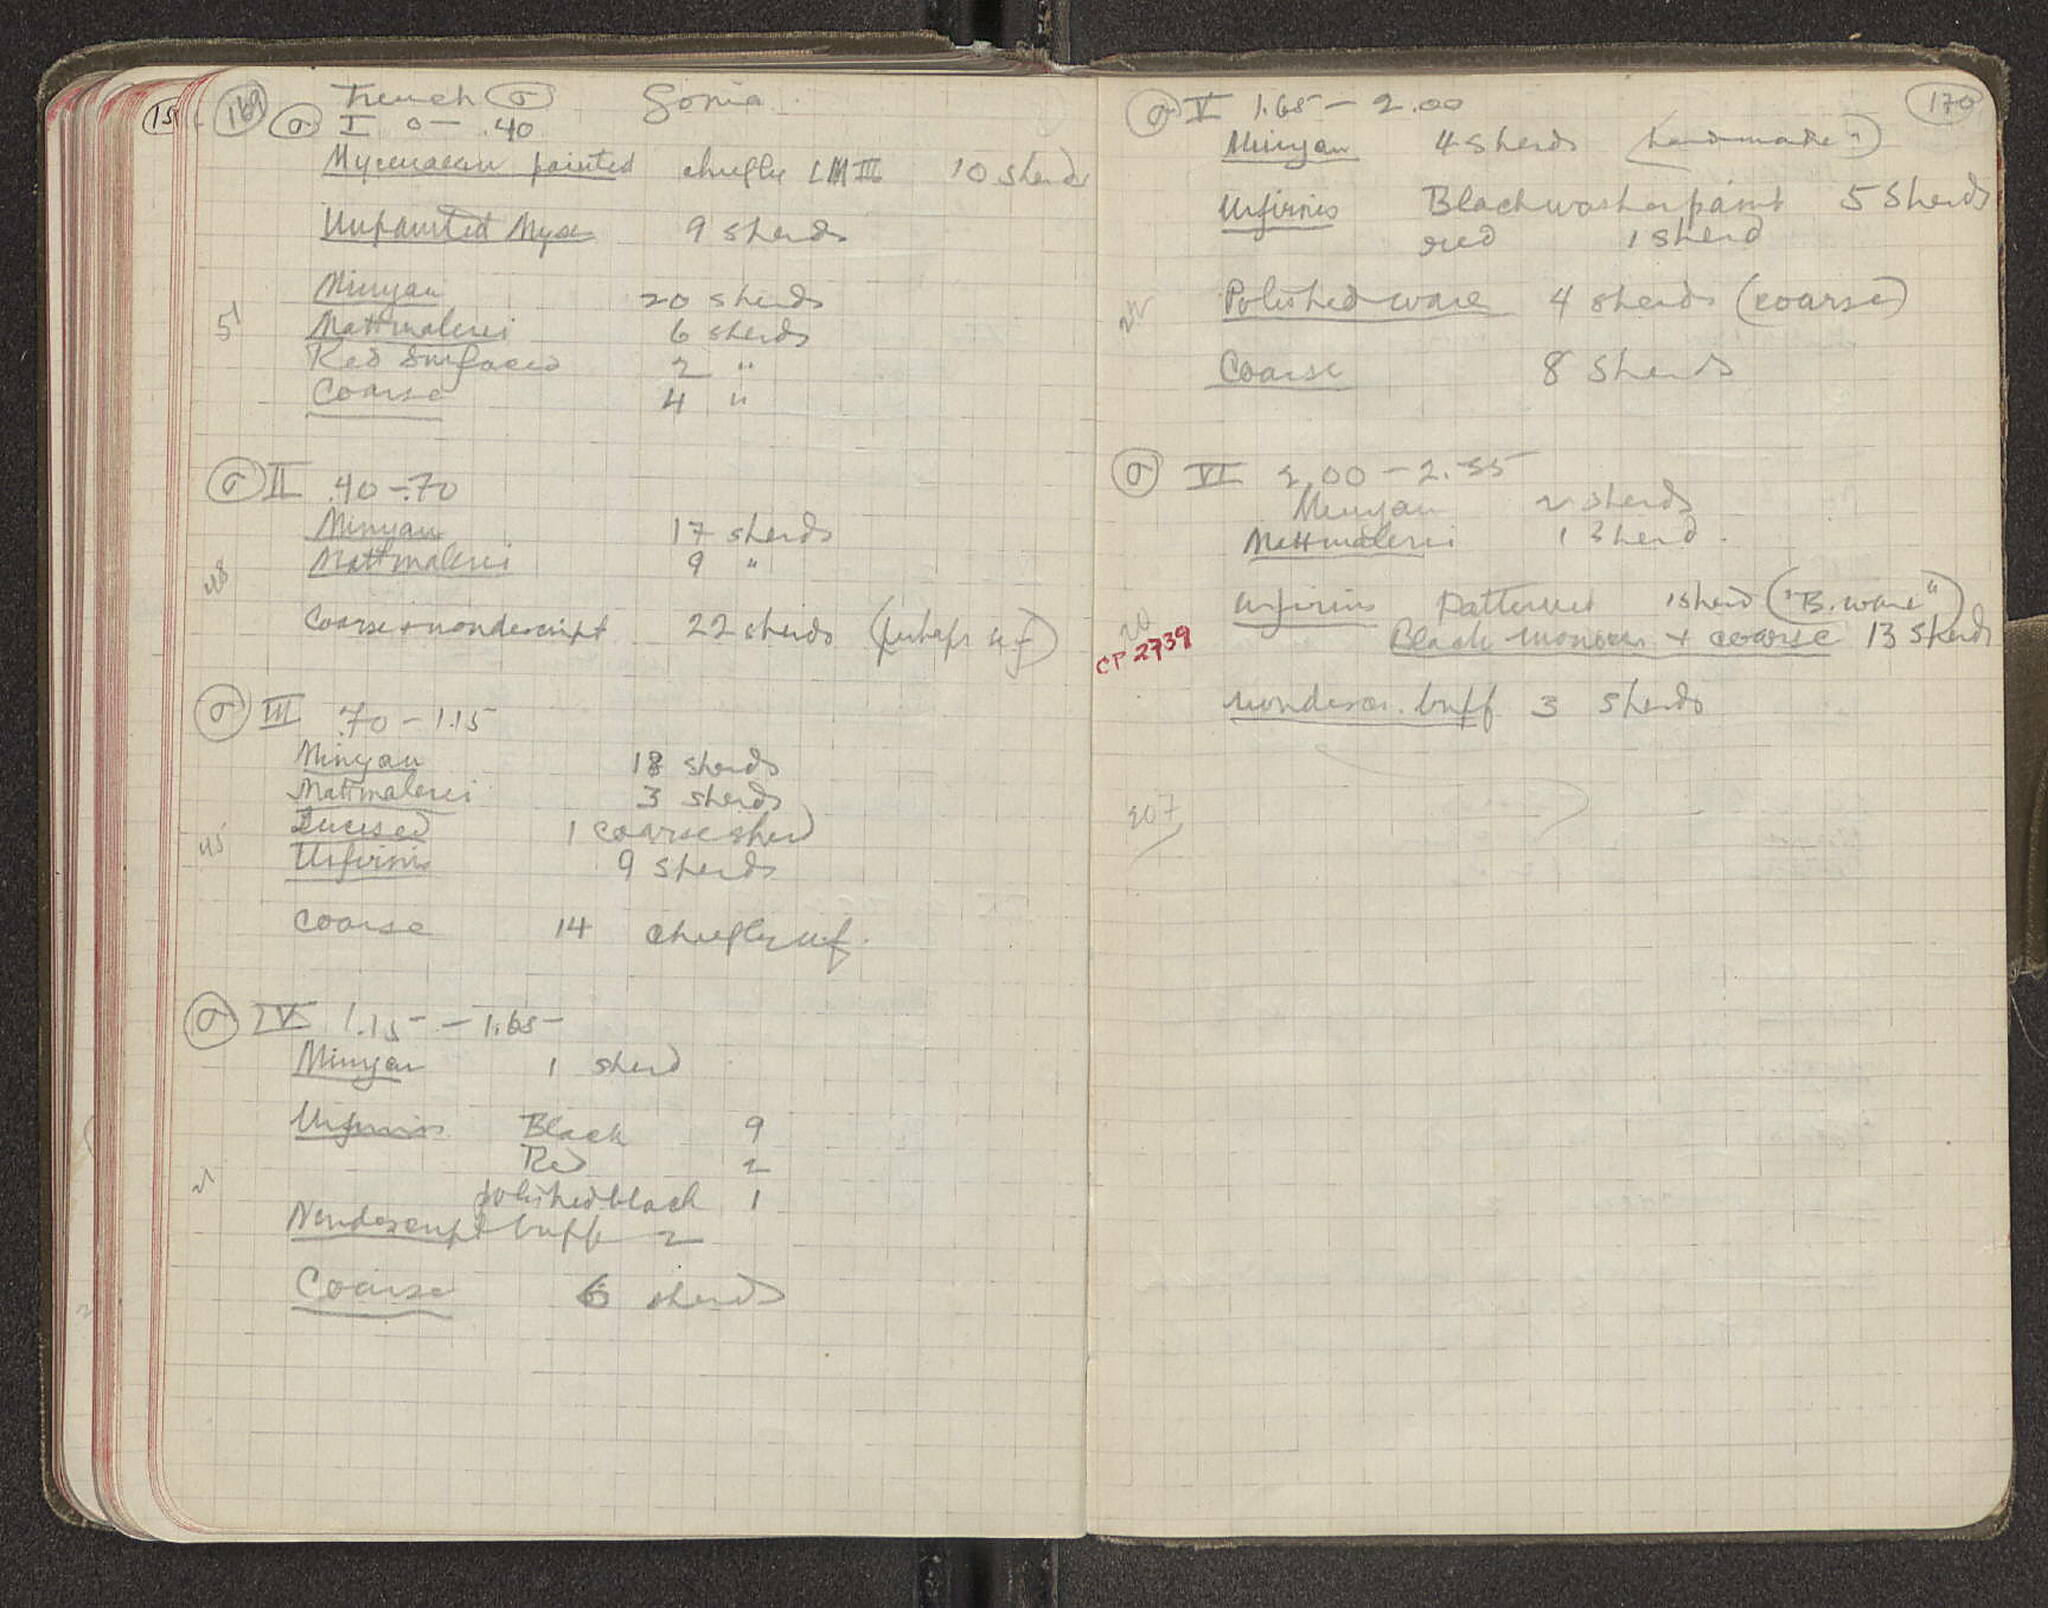 15
169
Trench σ Sonia
σ I 0 — .40
Mycenaean painted chiefly LM III 10 sherds
Unpainted Myc 9 sherds
Minyan 20 sherds
51
Mattmalerei 6 sherds
Red Surfaced 2 "
Coarse 4 "
σ II .40 – .70
Minyan 17 sherds
Mattmalerei 9 "
48
Coarse + nondescript 22 sherds (perhaps uf)
σ III .70 – 1.15
Minyan 18 sherds
Mattmalerei 3 sherds
Incised 1 coarse sherd
45
Urfirnis 9 sherds
Coarse 14 chiefly uf.
σ IV 1.15 – 1.65
Minyan 1 sherd
Urfirnis Black 9
Red 2
21
polished black 1
Nondescript buff 2
Coarse 6 sherds
170
σ V 1.65 – 2.00
Minyan 4 sherds (handmade?)
Urfirnis Black wash or paint 5 sherds
red 1 sherd
22
Polished ware 4 sherds (coarse)
Coarse 8 sherds
σ VI 2.00 – 2.35
Minyan 2 sherds
Mattmalerei 1 sherd.
Urfirnis Patterned 1 sherd ("B. ware")
20
CP 2739
Black + coarse 13 sherds
nondescr. buff 3 sherds
207